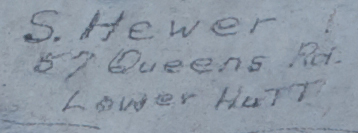 S. Hewer
57 Queens Rd.
Lower Hutt